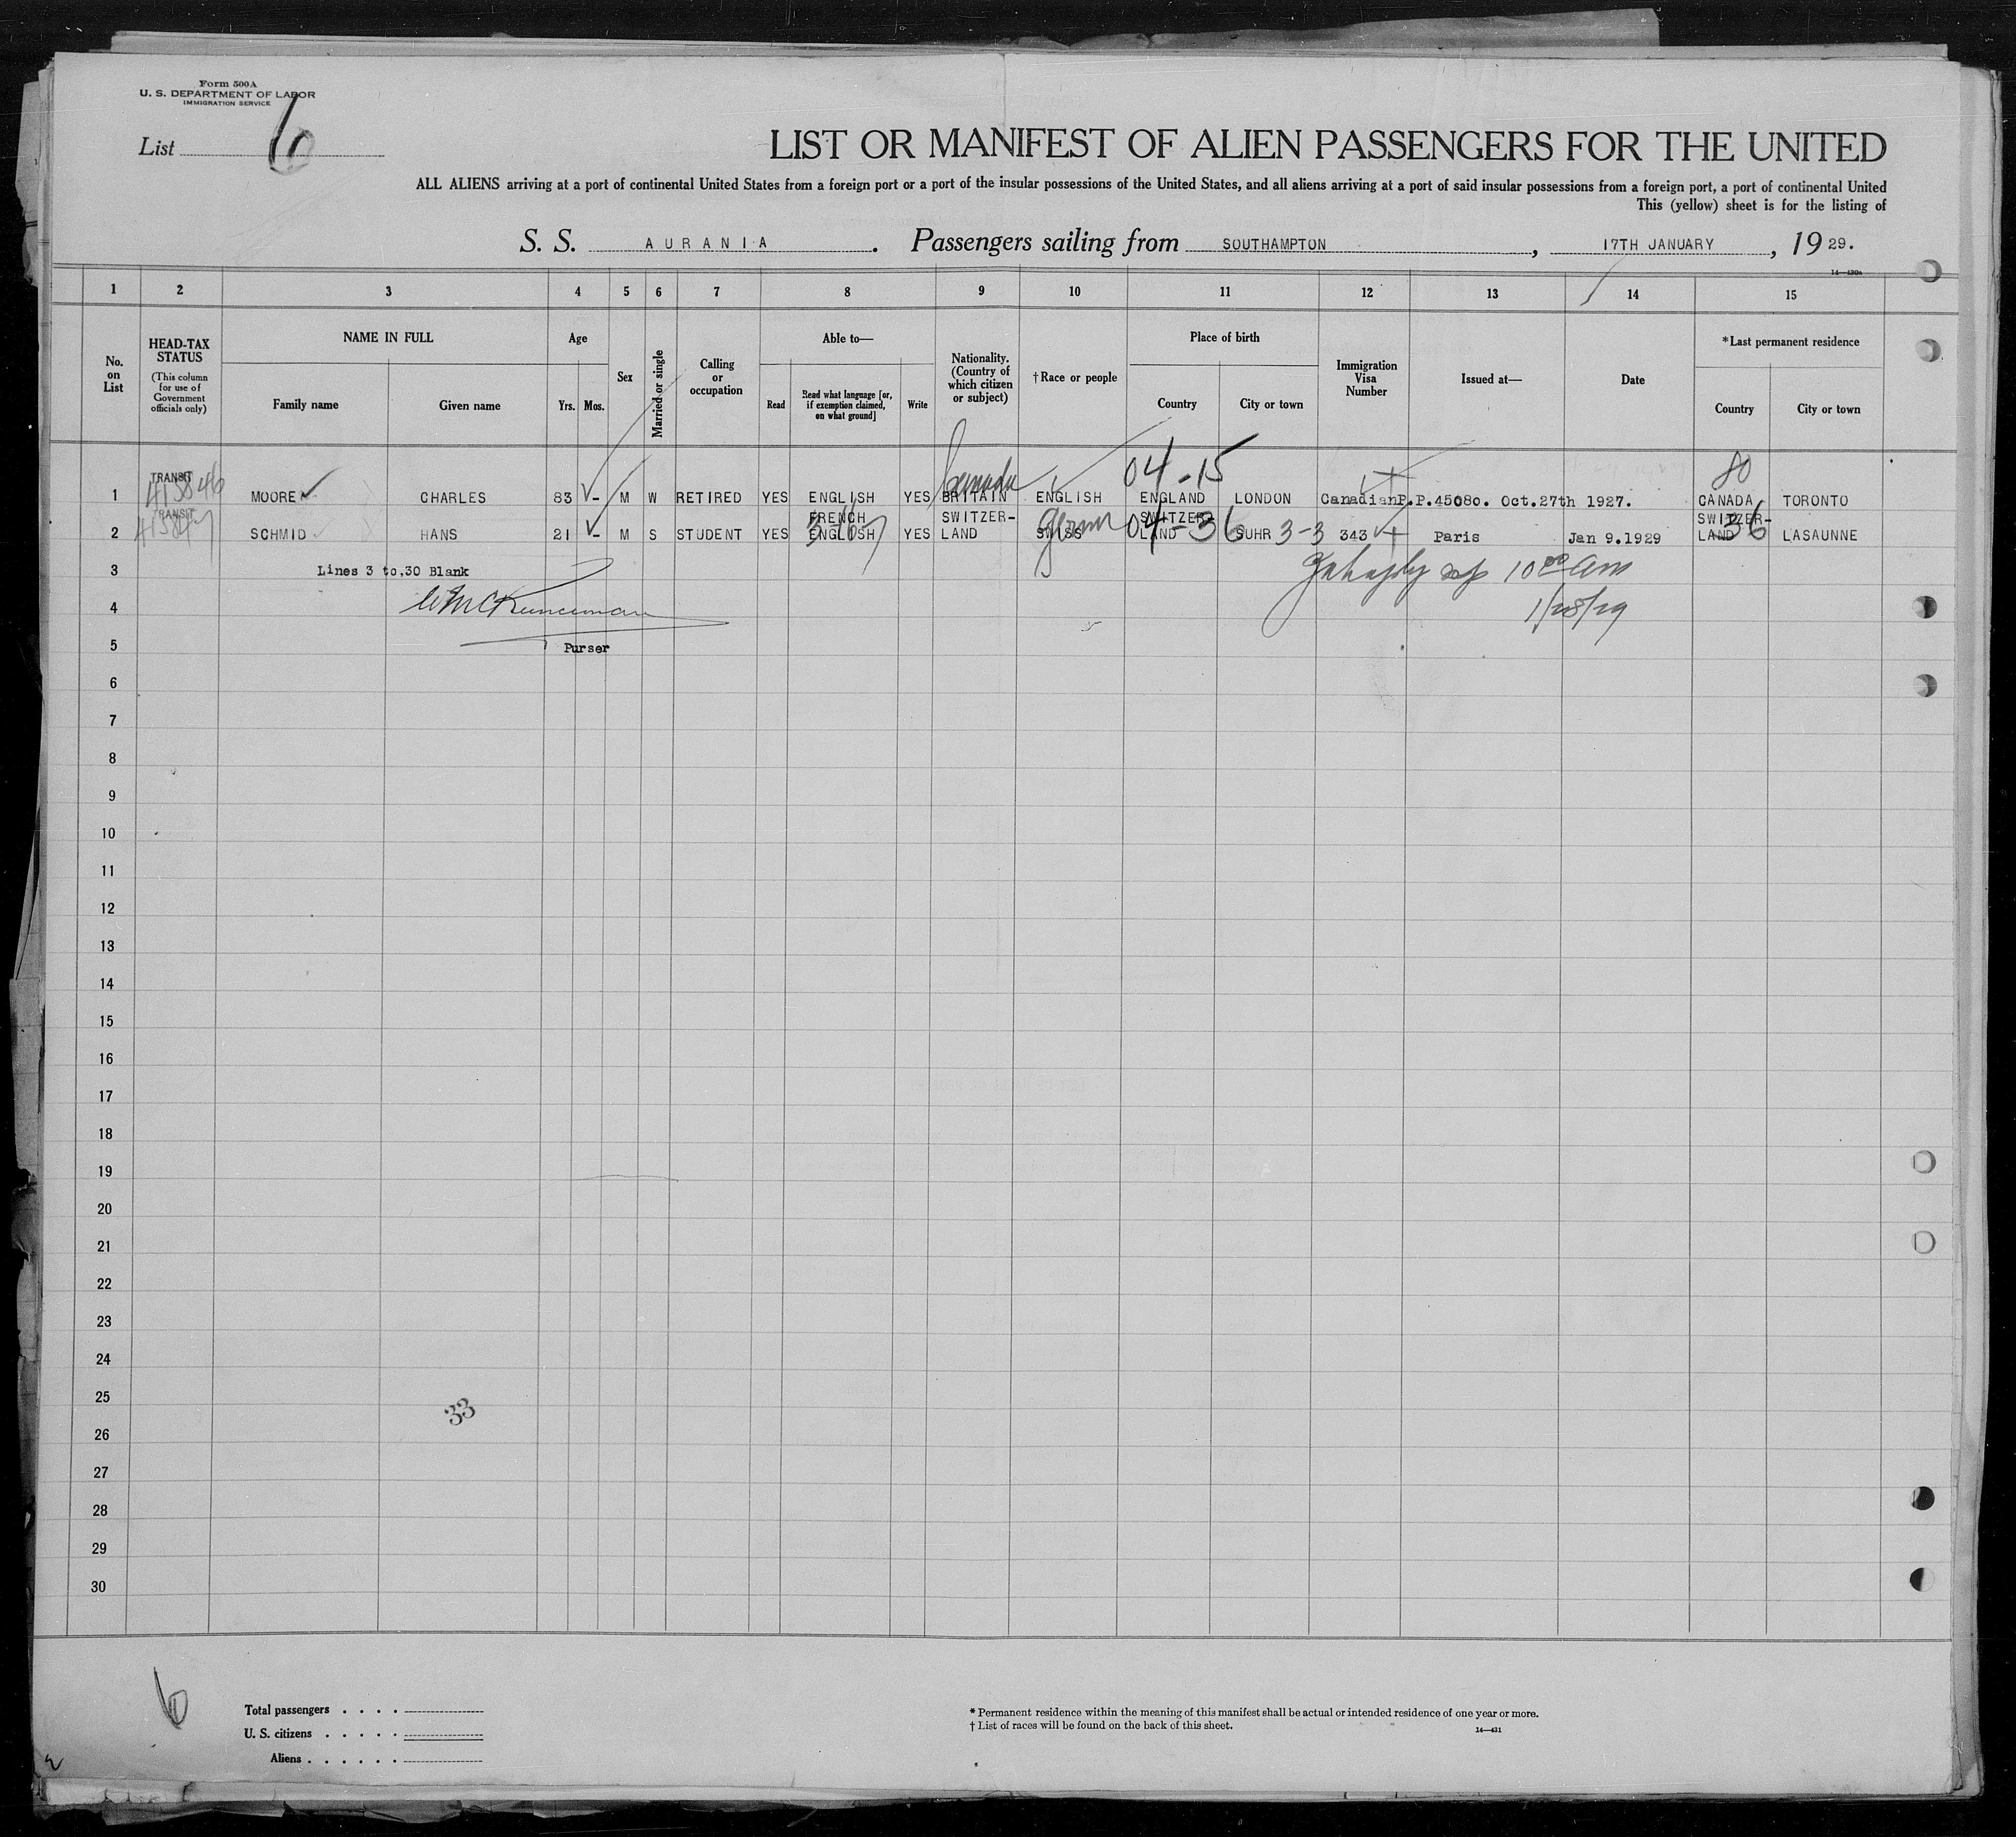 Form 500A
U. S. DEPARTMENT OF LABOR
IMMIGRATION SERVICE
List 6
LIST OR MANIFEST OF ALIEN PASSENGERS FOR THE UNITED
ALL ALIENS arriving at a port of continental United States from a foreign port or a port of the insular possessions of the United States, and all aliens arriving at a port of said insular possessions from a foreign port, a port of continental United
This (yellow) sheet is for the listing of
S. S. AURANIA. Passengers sailing from SOUTHAMPTON, 17TH JANUARY, 19 29.
14—430A
1 2 3 4 5 6 7 8 9 10 11 12 13 14 15
No. on List
HEAD-TAX STATUS (This column for use of Government officials only)
NAME IN FULL
Family name
Given name
Age
Yrs. Mos.
Sex
Married or single
Calling or occupation
Able to—
Read
Read what language [or, if exemption claimed, on what ground]
Write
Nationality. (Country of which citizen or subject)
†Race or people
Place of birth
Country
City or town
Immigration Visa Number
Issued at—
Date
*Last permanent residence
Country
City or town
Canada 04-15 80
1 TRANSIT 413846 MOORE CHARLES 83 - M W RETIRED YES ENGLISH YES BRITAIN ENGLISH ENGLAND LONDON CanadianP.P.45080. Oct.27th 1927. CANADA TORONTO
2 TRANSIT 413847 SCHMID HANS 21 - M S STUDENT YES FRENCH ENGLISH YES SWITZER-LAND SWISS German SWITZER-LAND 04-36 SUHR 3-3 343 Paris Jan 9.1929 SWITZER-LAND 36 LASAUNNE
3 Lines 3 to,30 Blank 10 00 am
4 1/28/29
5 Purser
6
7
8
9
10
11
12
13
14
15
16
17
18
19
20
21
22
23
24
25
33
26
27
28
29
30
6
Total passengers
U. S. citizens
Aliens
* Permanent residence within the meaning of this manifest shall be actual or intended residence of one year or more.
† List of races will be found on the back of this sheet.
14—431